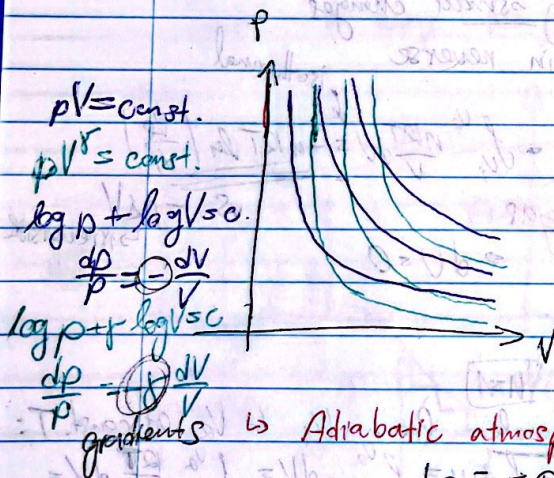 P
pV = const.
pV^γ = const.
log p + log V = c.
dp/p = - dV/V
log p + γ log V = c
dp/p = -γ dV/V
gradients
V
↳ Adiabatic atmosp